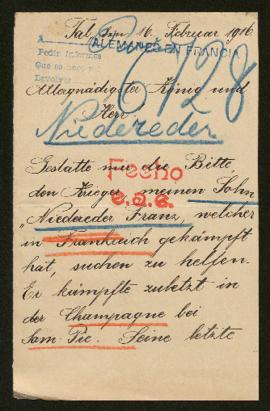 Tal 16. Februar 1916
ALEMANES EN FRANCIA
A
Pedir informes
Que se hace
Devolver
6128
Allergnädigster König und
Herr
Niedereder
Gestatte mir die Bitte
den Krieger meinen Sohn
Fecho
Niedereder Franz, welcher
e.s.e.
in Frankreich gekämpft
hat, suchen zu helfen.
Er kämpfte zuletzt in
der Champagne bei
Som-Pie. Seine letzte